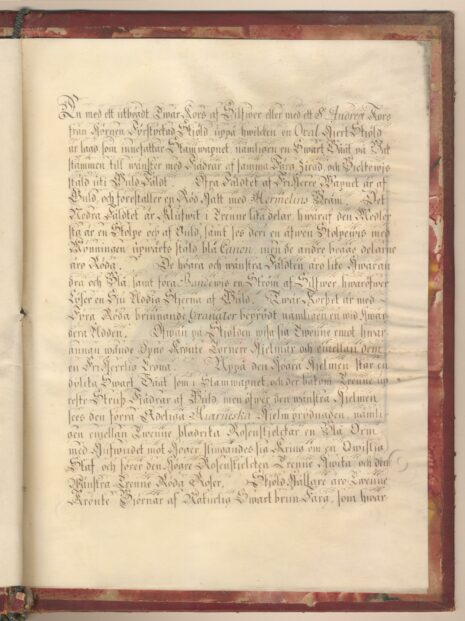 En med ett utbögdt Twär Kors af Silfwer eller med ett S: Andrea Kors
från hörnen Förstyckad Sköld uppå hwilcken en Oval hiert Sköld
är lagd som innefattar Stamwapnet nämligen en Swart
stämmen till wänster med Fiädrar af samma Färg
stäld uti Guld Fält. Öfra Fältdet af Friherre Wapnet är af
Guld, och föreställer en Röd Hatt med Hermelins Bräm. Det
Nedra Fältdet är Klufwit i Trenne lika delar hwaraf den Medler
sta är en Stolpe af Guld, samt ses deri en äfwen Stolpewis med
Mynningen upwärts stäld blå Canon, men de andre bägge delarne
äro Röda. De högra och wänstra Fältden äro like hwaran
dra och Blå, samt föra wis en Ström af Silfwer hwaröfwer
Lyser en Siu Uddig Stjerna af Guld. Twär Korset är med
Fyra Röda brinnande Granater beprydt nämligen en wid hwar
dera Ändan. Ofwan på Skölden wisa sig Twenne emot hwar
annan wände Öpne Krönte Torners Hielmar och emellan dem
en Friherrlig Crona. Uppå den högra Hielmen står en
dylik Swart som i Stamwapnet, och der bakom Trenne up
reste Struss Fiädrar af Guld, men öfwer den wänstra Hielmen
sees den förra Adeliga Hielm prydnaden, nämli
gen emellan Twenne bladrika Rosenstielckar en Blå Orm
med Hufwudet mot höger slingrandes sig kring om en
Staf, och förer den högre Rosenstielcken Trenne Hwita och den
Wänstra Trenne Röda Rosor. Sköld hållare äro Twenne
Krönte Biörnar af Naturlig Swart brun Färg, som hwar